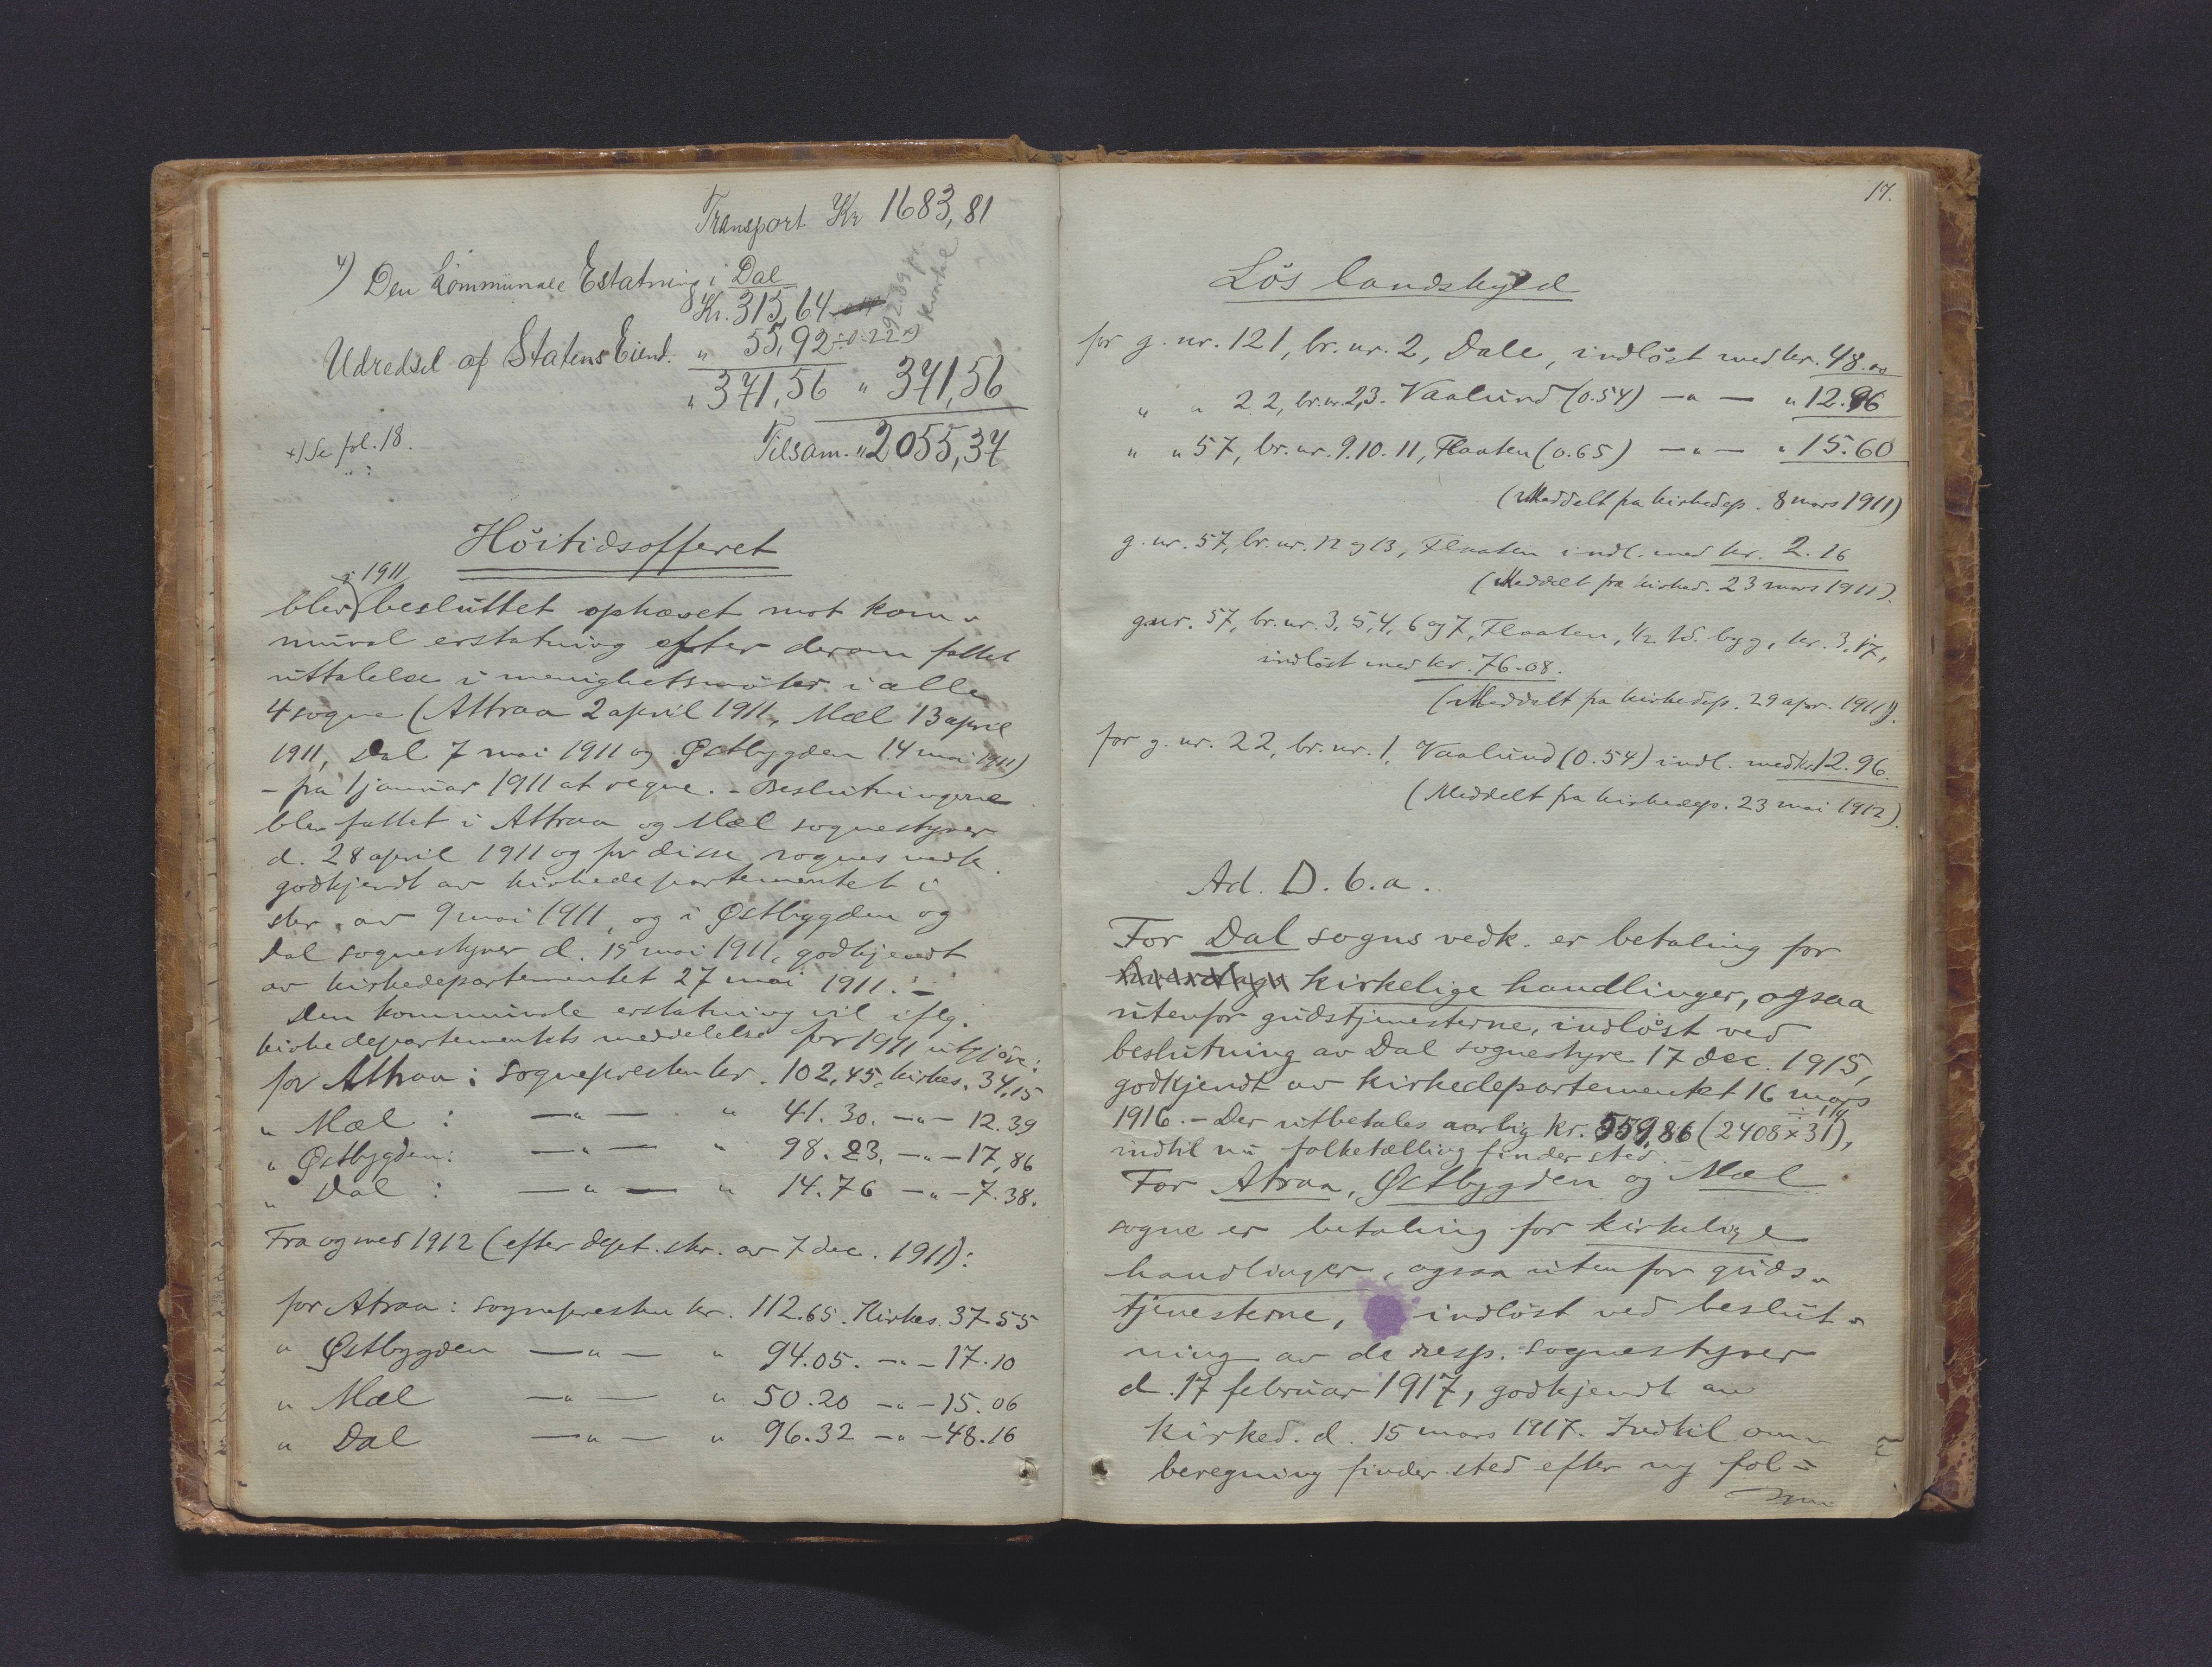 Transport Kr 1683,81
4) Den kommunale Estatning i Dal
Kr. 315,64
Udredsel af Statens Eiend. " 55,92 ÷ 0.22 x)
92.89 pr. kvartal
" 371,56 " 371,56
x) Se fol. 18.
Tilsam. " 2055,37
Höitidsofferet
i 1911
blev besluttet ophævet mot kom-
munal erstatning efter derom fattet
uttalelse i menighetsmöter i alle
4 sogne (Attraa 2 april 1911, Mæl 13 april
1911, Dal 7 mai 1911 og Østbygden 14 mai 1911)
- fra 1 januar 1911 at regne. - Beslutningene
blev fattet i Attraa og Mæl sognestyrer
d. 28 april 1911 og for disse sognes vedk.
godkjendt av kirkedepartementet i
skr. av 9 mai 1911, og i Østbygden og
Dal sognestyrer d. 15 mai 1911, godkjendt
av kirkedepartementet 27 mai 1911. -
Den kommunale erstatning vil iflg.
kirkedepartementets meddelelse for 1911 utgjöre:
for Attraa: sognepresten kr. 102,45, kirkes. 34,15
" Mæl : —"— " 41.30. —"— 12.39
" Østbygden: —"— " 98.23. —"— 17,86
" Dal : —"— " 14.76 —"— 7.38.
Fra og med 1912 (efter dept. skr. av 7 dec. 1911):
for Atraa: sognepresten kr. 112.65. Kirkes. 37.55
" Østbygden —"— " 94.05. —"— 17.10
" Mæl —"— " 50.20 —"— 15.06
" Dal —"— " 96.32 —"— 48.16
17.
Lös landskyld
for g. nr. 121, br. nr. 2, Dale, indlöst med kr. 48.00
" " 22, br. nr. 2,3. Vaalund (0.54) —"— " 12.96
" " 57, br. nr. 9.10.11, Flaaten (0.65) —"— " 15.60
(Meddelt fra kirkedep. 8 mars 1911)
g. nr. 57, br. nr. 12 og 13, Flaaten indl. med kr. 2.16
(Meddelt fra kirked. 23 mars 1911).
g. nr. 57, br. nr. 3, 5, 4, 6 og 7, Flaaten, 1/2 td. byg, kr. 3.17,
indlöst med kr. 76.08.
(Meddelt fra kirkedep. 29 apr. 1911).
for g. nr. 22, br. nr. 1, Vaalund (0.54) indl. med kr. 12.96.
(Meddelt fra kirkedep. 23 mai 1912).
Ad. D. 6. a.
For Dal sogns vedk. er betaling for
kirkelige handlinger, ogsaa
utenfor gudstjenesterne, indlöst ved
beslutning av Dal sognestyre 17 dec. 1915,
godkjendt av kirkedepartementet 16 mars
1916. - Der utbetales aarlig kr. 559,86 (2408 x 31),
indtil nu folketælling finder sted.
For Atraa, Østbygden og Mæl
sogne er betaling for kirkelige
handlinger, ogsaa utenfor guds-
tjenesterne, indlöst ved beslut-
ning av de resp. sognestyrer
d. 17 februar 1917, godkjendt av
kirked. d. 15 mars 1917. Indtil om-
beregning finder sted efter ny fol-